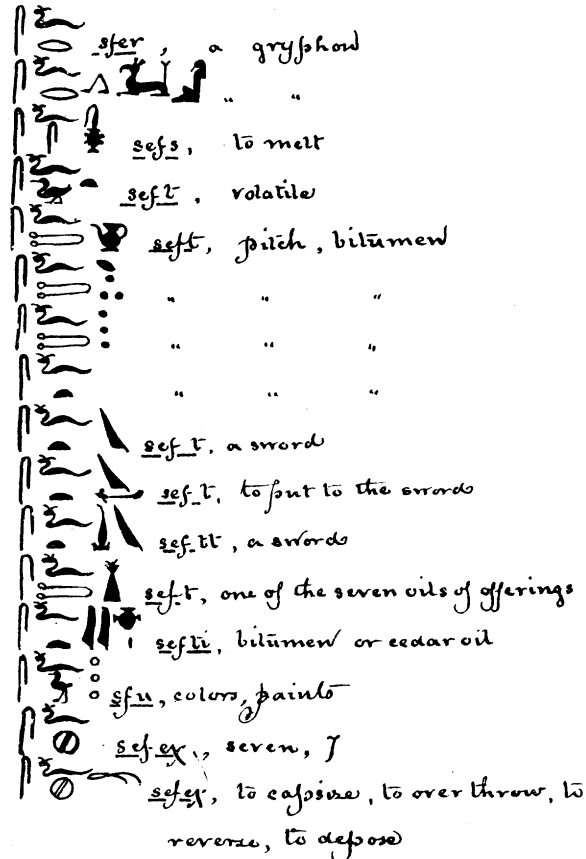 sfer, a gryphon
" "
sefs, to melt
seft, volatile
seft, pitch, bitumen
" " "
" " "
" " "
sef_t, a sword
sef_t, to put to the sword
sef_tt, a sword
sef_t, one of the seven oils of offerings
sefti, bitumen or cedar oil
sfu, colors, paints
sefeχ, seven, 7
sefeχ, to capsize, to over throw, to
reverse, to depose